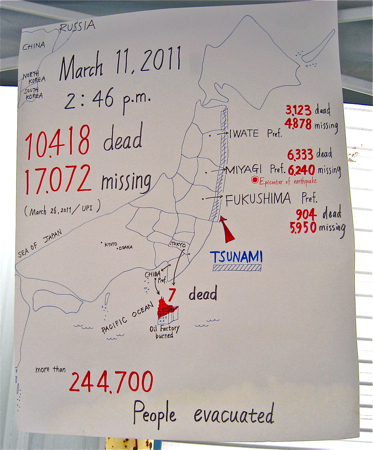 RUSSIA
CHINA
NORTH KOREA
SOUTH KOREA
March 11, 2011
2:46 p.m.
10,418 dead
17,072 missing
(March 26, 2011 / UPI)
3,123 dead
4,878 missing
IWATE Pref.
6,333 dead
MIYAGI Pref. 6,240 missing
Epicenter of earthquake
FUKUSHIMA Pref.
904 dead
5,950 missing
SEA OF JAPAN
KYOTO
OSAKA
TOKYO
TSUNAMI
CHIBA Pref.
7 dead
PACIFIC OCEAN
Oil Factory
burned
more than
244,700
People evacuated